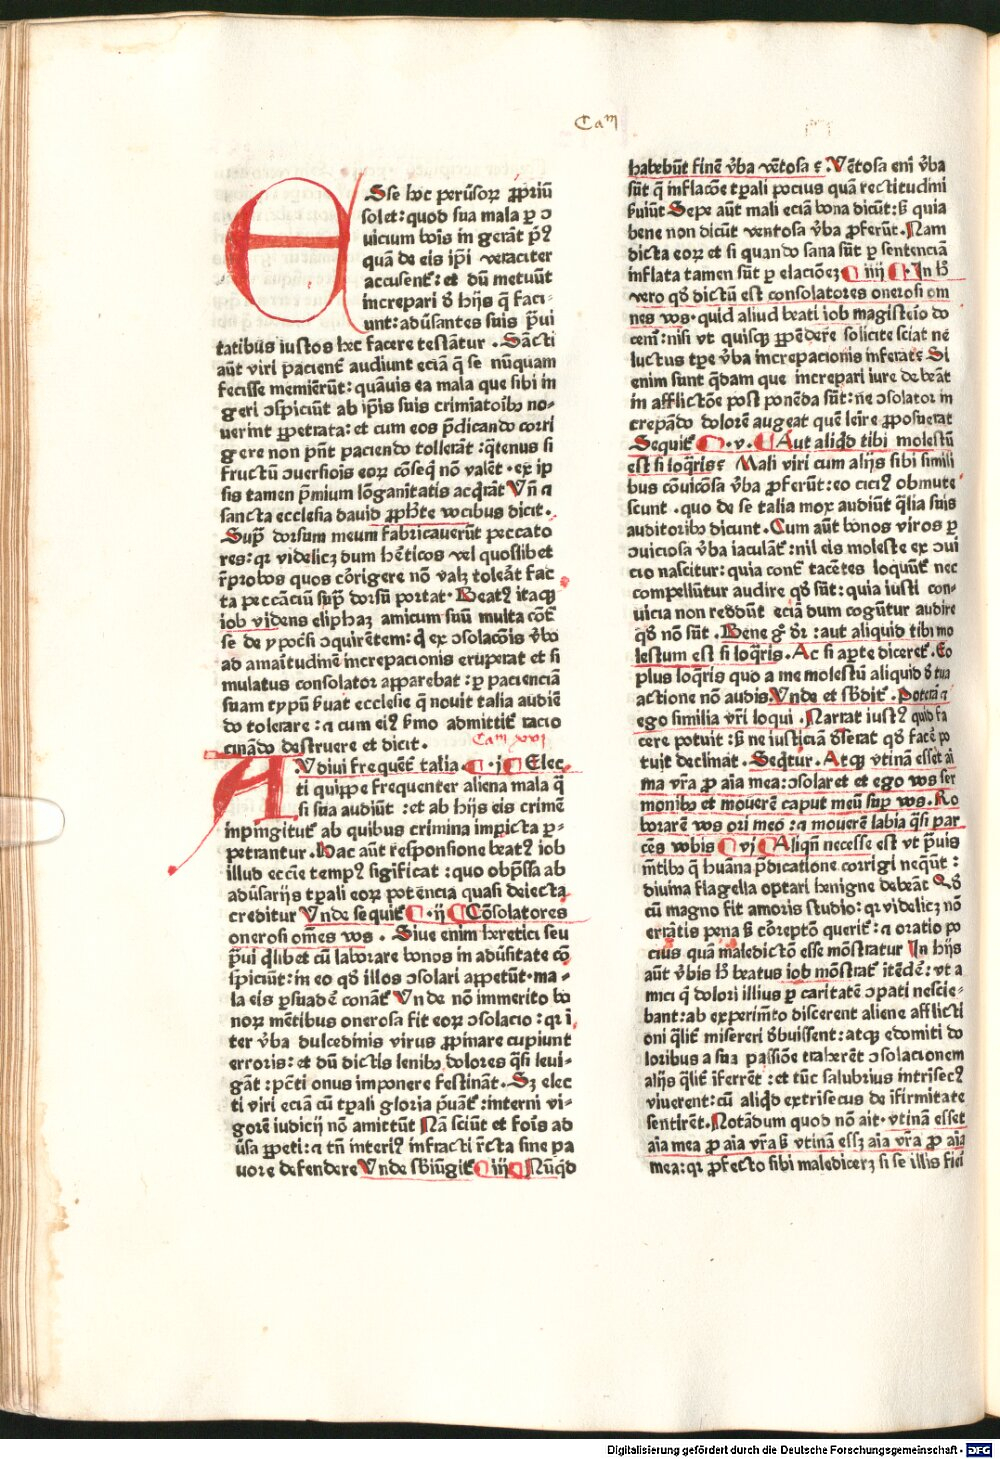 Cam
Sse hoc peruersorum proprium
solet: quod sua mala per con
uicium bonis in gerant priꝰ
quã de eis ipsi veraciter
accusentur: et dũ metuũt
increpari ð hijs q̃ faci-
unt: aduersantes suis prẽui
tatibus iustos hec facere testãtur . Sãcti
aũt viri pacienter audiunt eciã q̃ se nũquam
fecisse meminerũt: quãuis ea mala que sibi in
geri ɔspiciũt ab ip̃is suis crimiatoribꝫ no-
uerint ꝑpetrata: et cum eos p̃dicando corri
gere non pñt paciendo tollerãt: q̃tenus si
fructũ ɔuersiõis eoꝝ cõseq̃ nõ valẽt . ex ip
sis tamen p̃mium lõganĩtatis acq̃rãt Vñ a
sancta ecclesia david ꝓph̃te vocibus dicit.
Sup̃ dorsum meum fabricaverũt peccato
res: qꝛ videlicꝫ dum hẽticos vel quoslibet
r̃probos quos corrigere nõ valꝫ tolerãt fac
ta peccãciũ sup̃ dorsũ portat . Beatꝰ itaqꝫ
iob videns eliphaꝫ amicum suũ multa cõt̃
se de ypocr̃si ɔquirẽtem: q̃ ex ɔsolacõis v̓bo
ad amaritudinẽ increpacionis eruperat et si
mulatus consolator apparebat: ꝑ pacienciã
suam typũ ẞuat ecclesie q̃ nouit talia audiẽ
do tolerare: a cum eiꝰ ẞmo admittit̃ racio
cinãdo destruere et dicit.
Cam xvj
AVdiui frequẽt̃ talia . j Elec
ti quippe frequenter aliena mala q̃
si sua audiũt : et ab hijs eis crimẽ
inpingitur̃ ab quibus crimina impicta ꝑ-
petrantur . Hac aũt responsione beatꝰ iob
illud eccĩe tempꝰ sigificat: quo obp̃ssa ab
adũsarijs tꝑali eoꝝ potẽncia quasi deiecta
creditur Vnde sequit̃ . ij Cõsolatores
onerosi om̃es vos . Siue enim heretici seu
p̃ui q̃libet cũ laborare bonos in adũsitate cõ
spiciũt: in eo qđ illos ɔsolari appetũt . ma-
la eis ꝑsuadẽ conãt̃ Vnde nõ immerito bo
noꝝ mẽtibus onerosa fit eoꝝ ɔsolacio: qꝛ ĩ
ter v̓ba dulcedinis virus ꝓpinare cupiunt
erroris: et dũ dictis lenibꝫ dolores q̃si leui-
gãt: pcc̃ti onus imponere festinãt . Sꝫ elec
ti viri eciã cũ tꝑali gloria p̓uãt̃: interni vi-
gorẽ iudicij nõ amittũt Nã sciũt et foris ad
ũsa ꝑpeti: a tñ interiꝰ infracti r̃cta sine pa
uore defendere Vnde sb̓iũgit̃ iij Nũq̃d
habebũt finẽ v̓ba vẽtosa ? Vẽtosa enĩ v̓ba
sũt q̃ inflacõe tꝑali pocius quã rectitudini
ẞuiũt Sepe aũt mali eciã bona dicũt: ß quia
bene non dicũt ventosa v̓ba ꝓferũt . Nam
dicta eoꝝ et si quando sana sũt ꝑ sentenciã
inflata tamen sũt ꝑ elacionẽ iiij . In h̃
vero qđ dictũ est consolatores onerosi om
nes vos . quid aliud beati iob magisteio do
cem̃: nisi vt quisqꝫ ꝑpẽdere solicite sciat ne
luctus tp̃e v̓ba increpacionis inferat? Si
enim sunt q̃dam que increpari iure debeãt
in afflictõe post ponẽda sũt: ne ɔsolator in
crepãdo dolorẽ augeat quẽ leĩre ꝓposuerat
Sequit̃ . v . Aut aliqđ tibi molestũ
est si loq̃ris? Mali viri cum alijs sibi simili
bus cõuicõsa v̓ba ꝓferũt: eo ciciꝰ obmute
scunt . quo de se talia mox audiũt q̃lia suis
auditoribꝫ dicunt . Cum aũt bonos viros ꝑ
ɔuiciosa v̓ba iaculãt̃: nil eis moleste ex ɔui
cio nascitur: quia cont̃ tacẽtes loquũt̃ nec
compellũtur audire qđ sũt: quia iusti con-
uicia non reddũt eciã dum cogũtur audire
qđ nõ sũt . Bene gͦ dr̃: aut aliquid tibi mo
lestum est si loq̃ris . Ac si aꝑte diceret̃ . Eo
plus loq̃ris quo a me molestũ aliquid ð tua
actione nõ audis . Vnde et sb̓dit̃ . Poterã a
ego similia vr̃i loqui . Narrat iustꝰ quid fa
cere potuit: ß ne iusticiã ðserat qđ facẽ po
tuit declinat . Seq̃tur . Atqꝫ vtinã esset ai
ma vr̃a ꝓ aĩa mea: ɔsolaret et ego vos ser
monibꝫ et mouerẽ caput meũ suꝑ vos . Ro
borarẽ vos ori meo: a mouerẽ labia q̃si par
cẽs vobis vj Aliqñ necesse est vt p̃uis
mẽtibꝫ q̃ huãna p̃dicatione corrigi neq̃ũt:
diuina flagella optari benigne debeãt Qđ
cũ magno fit amoris studio: qꝛ videlicꝫ nõ
errãtis pena ß correptõ querit̃: a oratio po
cius quã maledictõ esse mõstratur In hijs
aũt v̓bis h̃ beatus iob mõstrat̃ itẽdẽ: vt a
mici q̃ dolori illius ꝑ caritatẽ ɔpati nescie-
bant: ab experimẽto discerent aliene afflicti
oni q̃lit̃ misereri ðbuissent: atqꝫ edomiti do
loribus a sua passiõe traherẽt ɔsolacionem
alijs q̃lit̃ ĩferrẽt: et tũc salubrius intrisecꝰ
viuerent: cũ aliqđ extrisecus de ĩfirmitate
sentirẽt . Notãdum quod nõ ait . vtinã esset
aĩa mea ꝓ aĩa vr̃a ß vtinã essꝫ aĩa vr̃a ꝓ aĩa
mea: qꝛ ꝓfecto sibi maledicerꝫ si se illis fieri
Digitalisierung gefördert durch die Deutsche Forschungsgemeinschaft - DFG